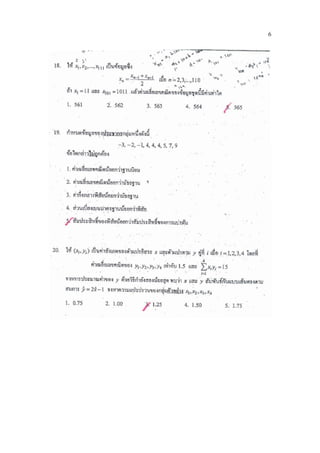 6
18. ให้ x₁, x₂,..., x₁₁₁ เป็นข้อมูลซึ่ง
xₙ = (xₙ₋₁ + xₙ₊₁)/2 เมื่อ n = 2,3,...,110
ถ้า x₁ = 11 และ x₁₀₁ = 1011 แล้วค่าเฉลี่ยเลขคณิตของข้อมูลชุดนี้มีค่าเท่าใด
1. 561 2. 562 3. 563 4. 564 5. 565
19. กำหนดข้อมูลของประชากรกลุ่มหนึ่งดังนี้
-3, -2, -1, 4, 4, 4, 5, 7, 9
ข้อใดกล่าวไม่ถูกต้อง
1. ค่าเฉลี่ยเลขคณิตน้อยกว่าฐานนิยม
2. ค่าเฉลี่ยเลขคณิตน้อยกว่ามัธยฐาน
3. ค่ากึ่งกลางพิสัยน้อยกว่ามัธยฐาน
4. ส่วนเบี่ยงเบนมาตรฐานน้อยกว่าพิสัย
5. สัมประสิทธิ์ของพิสัยน้อยกว่าสัมประสิทธิ์ของการแปรผัน
20. ให้ (xᵢ, yᵢ) เป็นค่าสังเกตของตัวแปรอิสระ x และตัวแปรตาม y คู่ที่ i เมื่อ i = 1, 2, 3, 4 โดยที่
ค่าเฉลี่ยเลขคณิตของ y₁, y₂, y₃, y₄ เท่ากับ 1.5 และ ∑xᵢyᵢ = 15
จากการประมาณค่าของ y ด้วยวิธีกำลังสองน้อยสุด พบว่า x และ y สัมพันธ์กันแบบเส้นตรงตาม
สมการ ŷ = 2x - 1 จงหาความแปรปรวนของกลุ่มตัวอย่าง x₁, x₂, x₃, x₄
1. 0.75 2. 1.00 3. 1.25 4. 1.50 5. 1.75